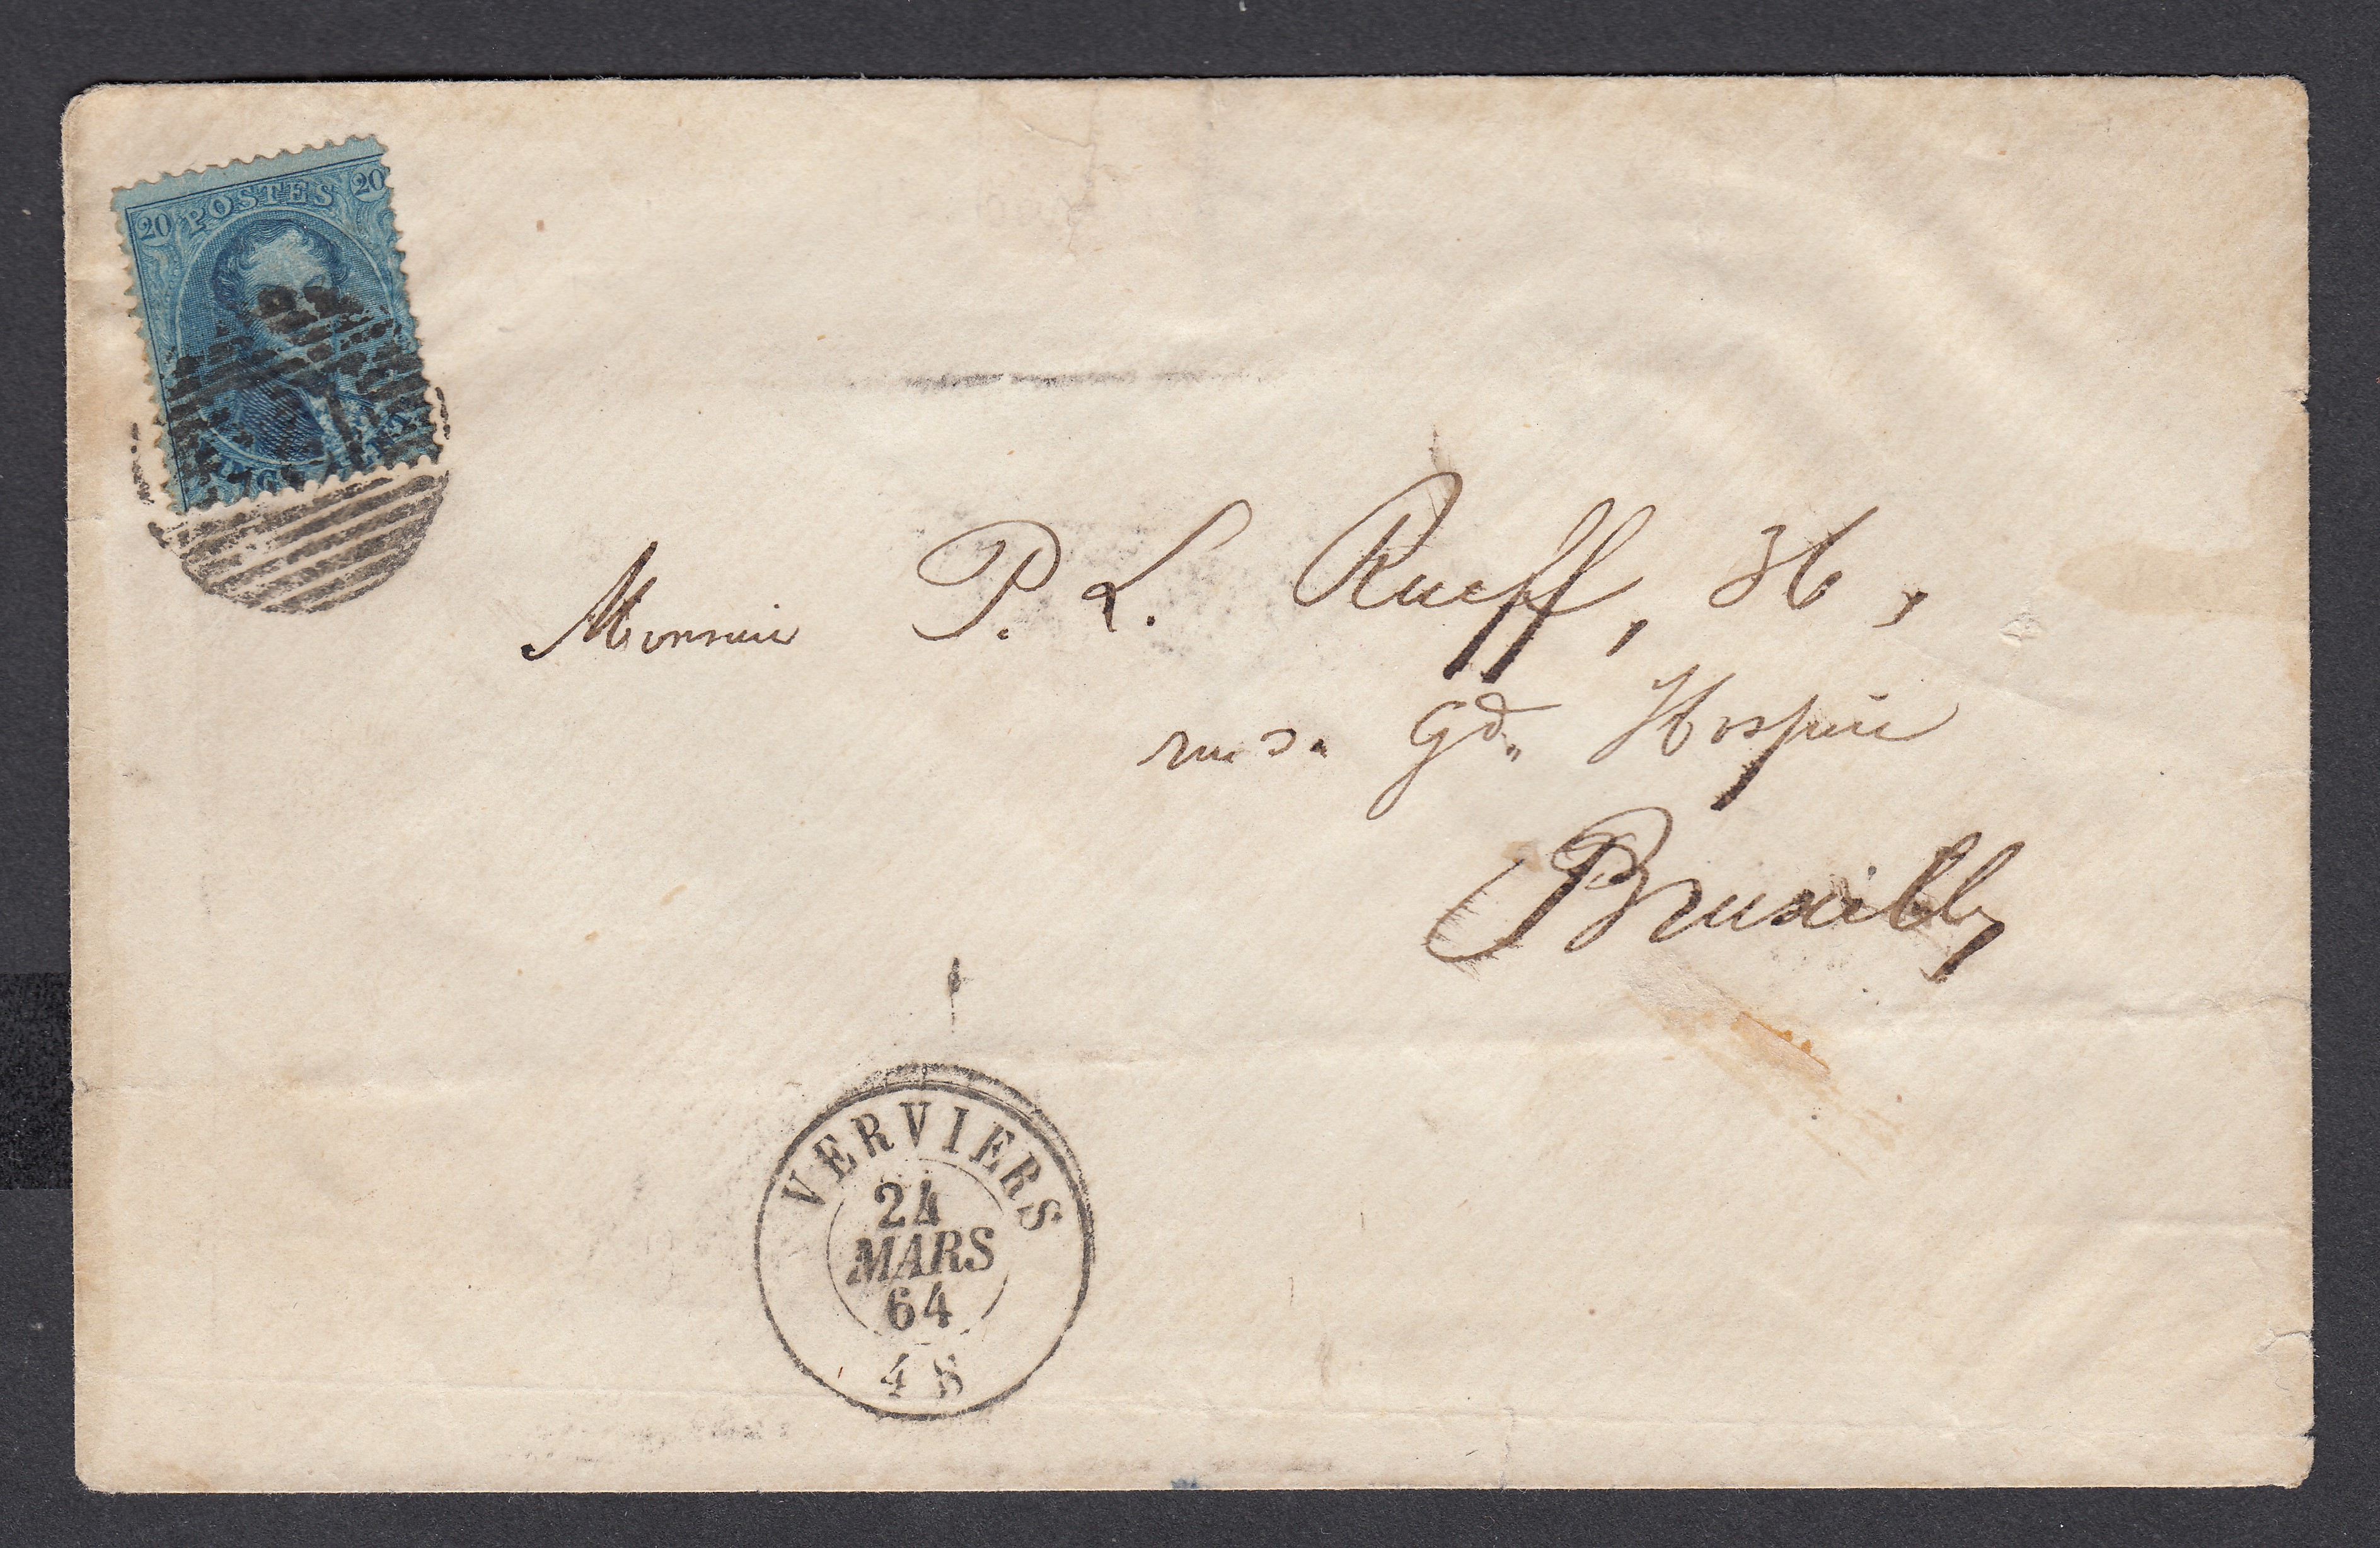 20 POSTES 20
Monsieur P. L. Rueff, 36,
rue du Gd. Hospice
Bruxelles
VERVIERS
24
MARS
64
4 S